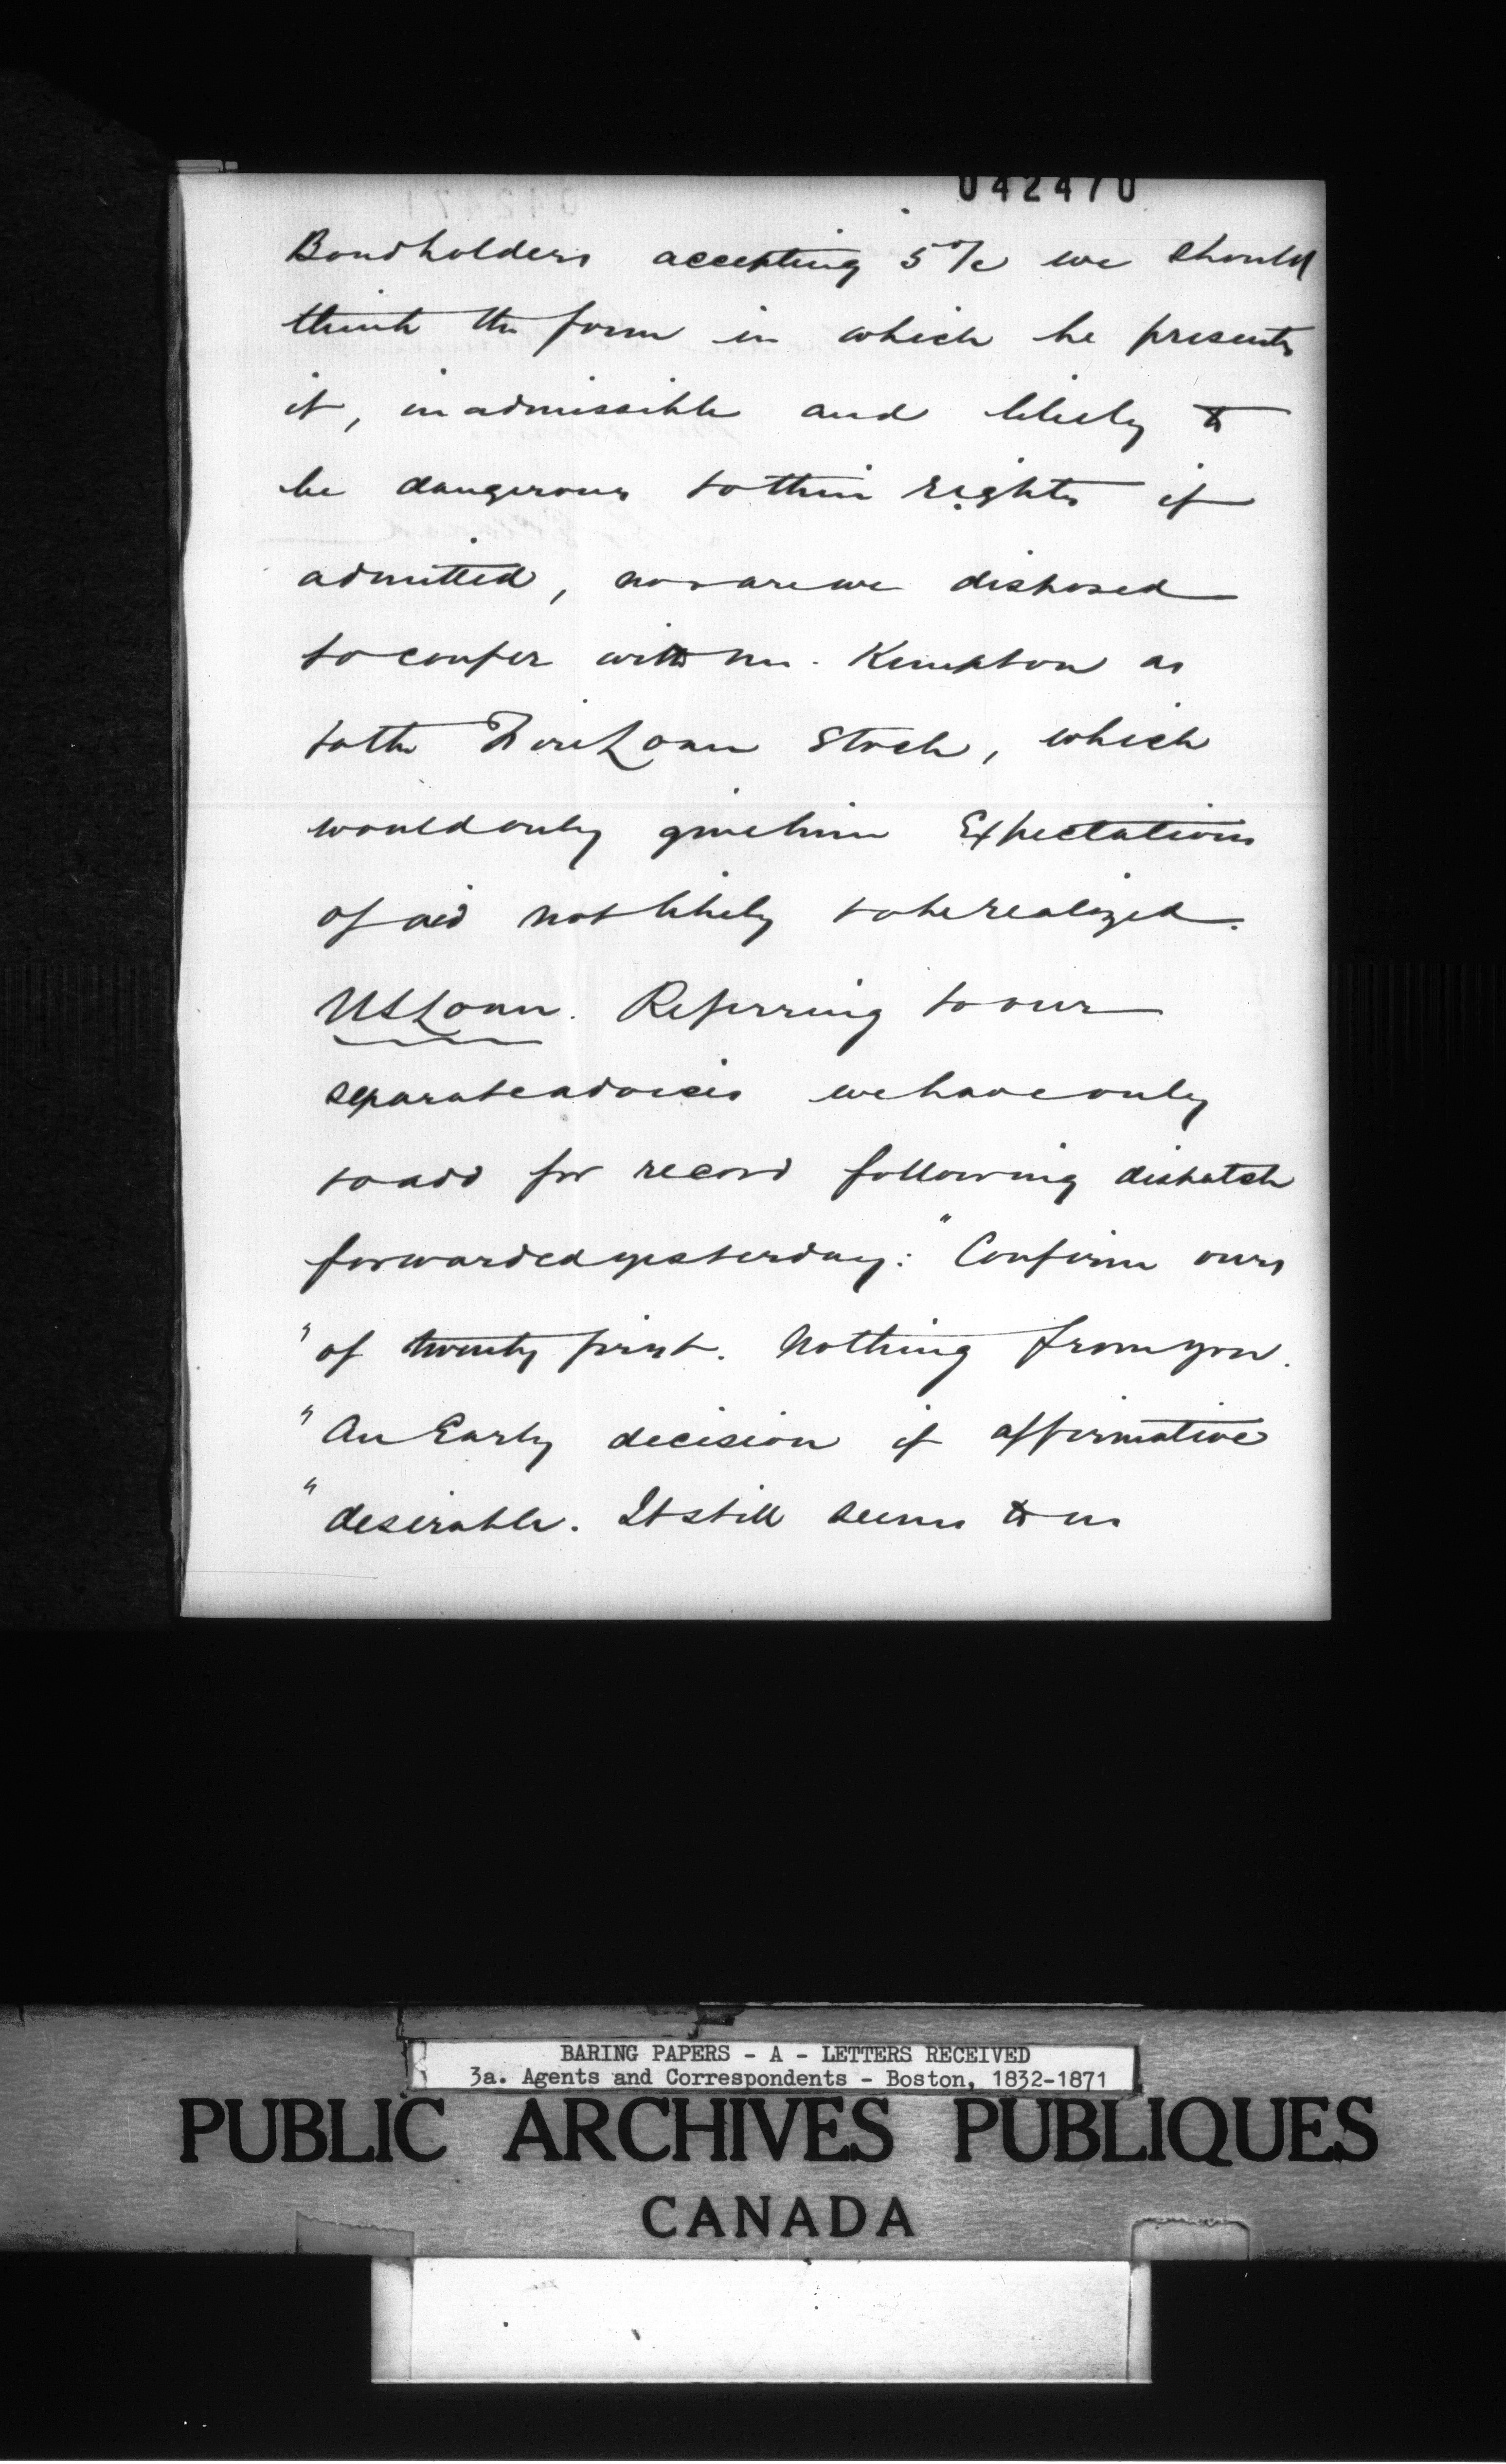 042470
Bondholders accepting 5 % we should
think the form in which he presents
it, inadmissible and likely to
be dangerous to their rights if
admitted, nor are we disposed
to confer with Mr. Kimpton as
to the Loan Stock, which
would only give him Expectations
of aid not likely to be realized.
US Loan. Referring to our
separate advices we have only
to add for record following dispatch
forwarded yesterday: "Confirm ours
" of twenty first. Nothing from you.
" An Early decision if affirmative
" desirable. It still seems to us
BARING PAPERS - A - LETTERS RECEIVED
3a. Agents and Correspondents - Boston, 1832-1871
PUBLIC ARCHIVES PUBLIQUES
CANADA